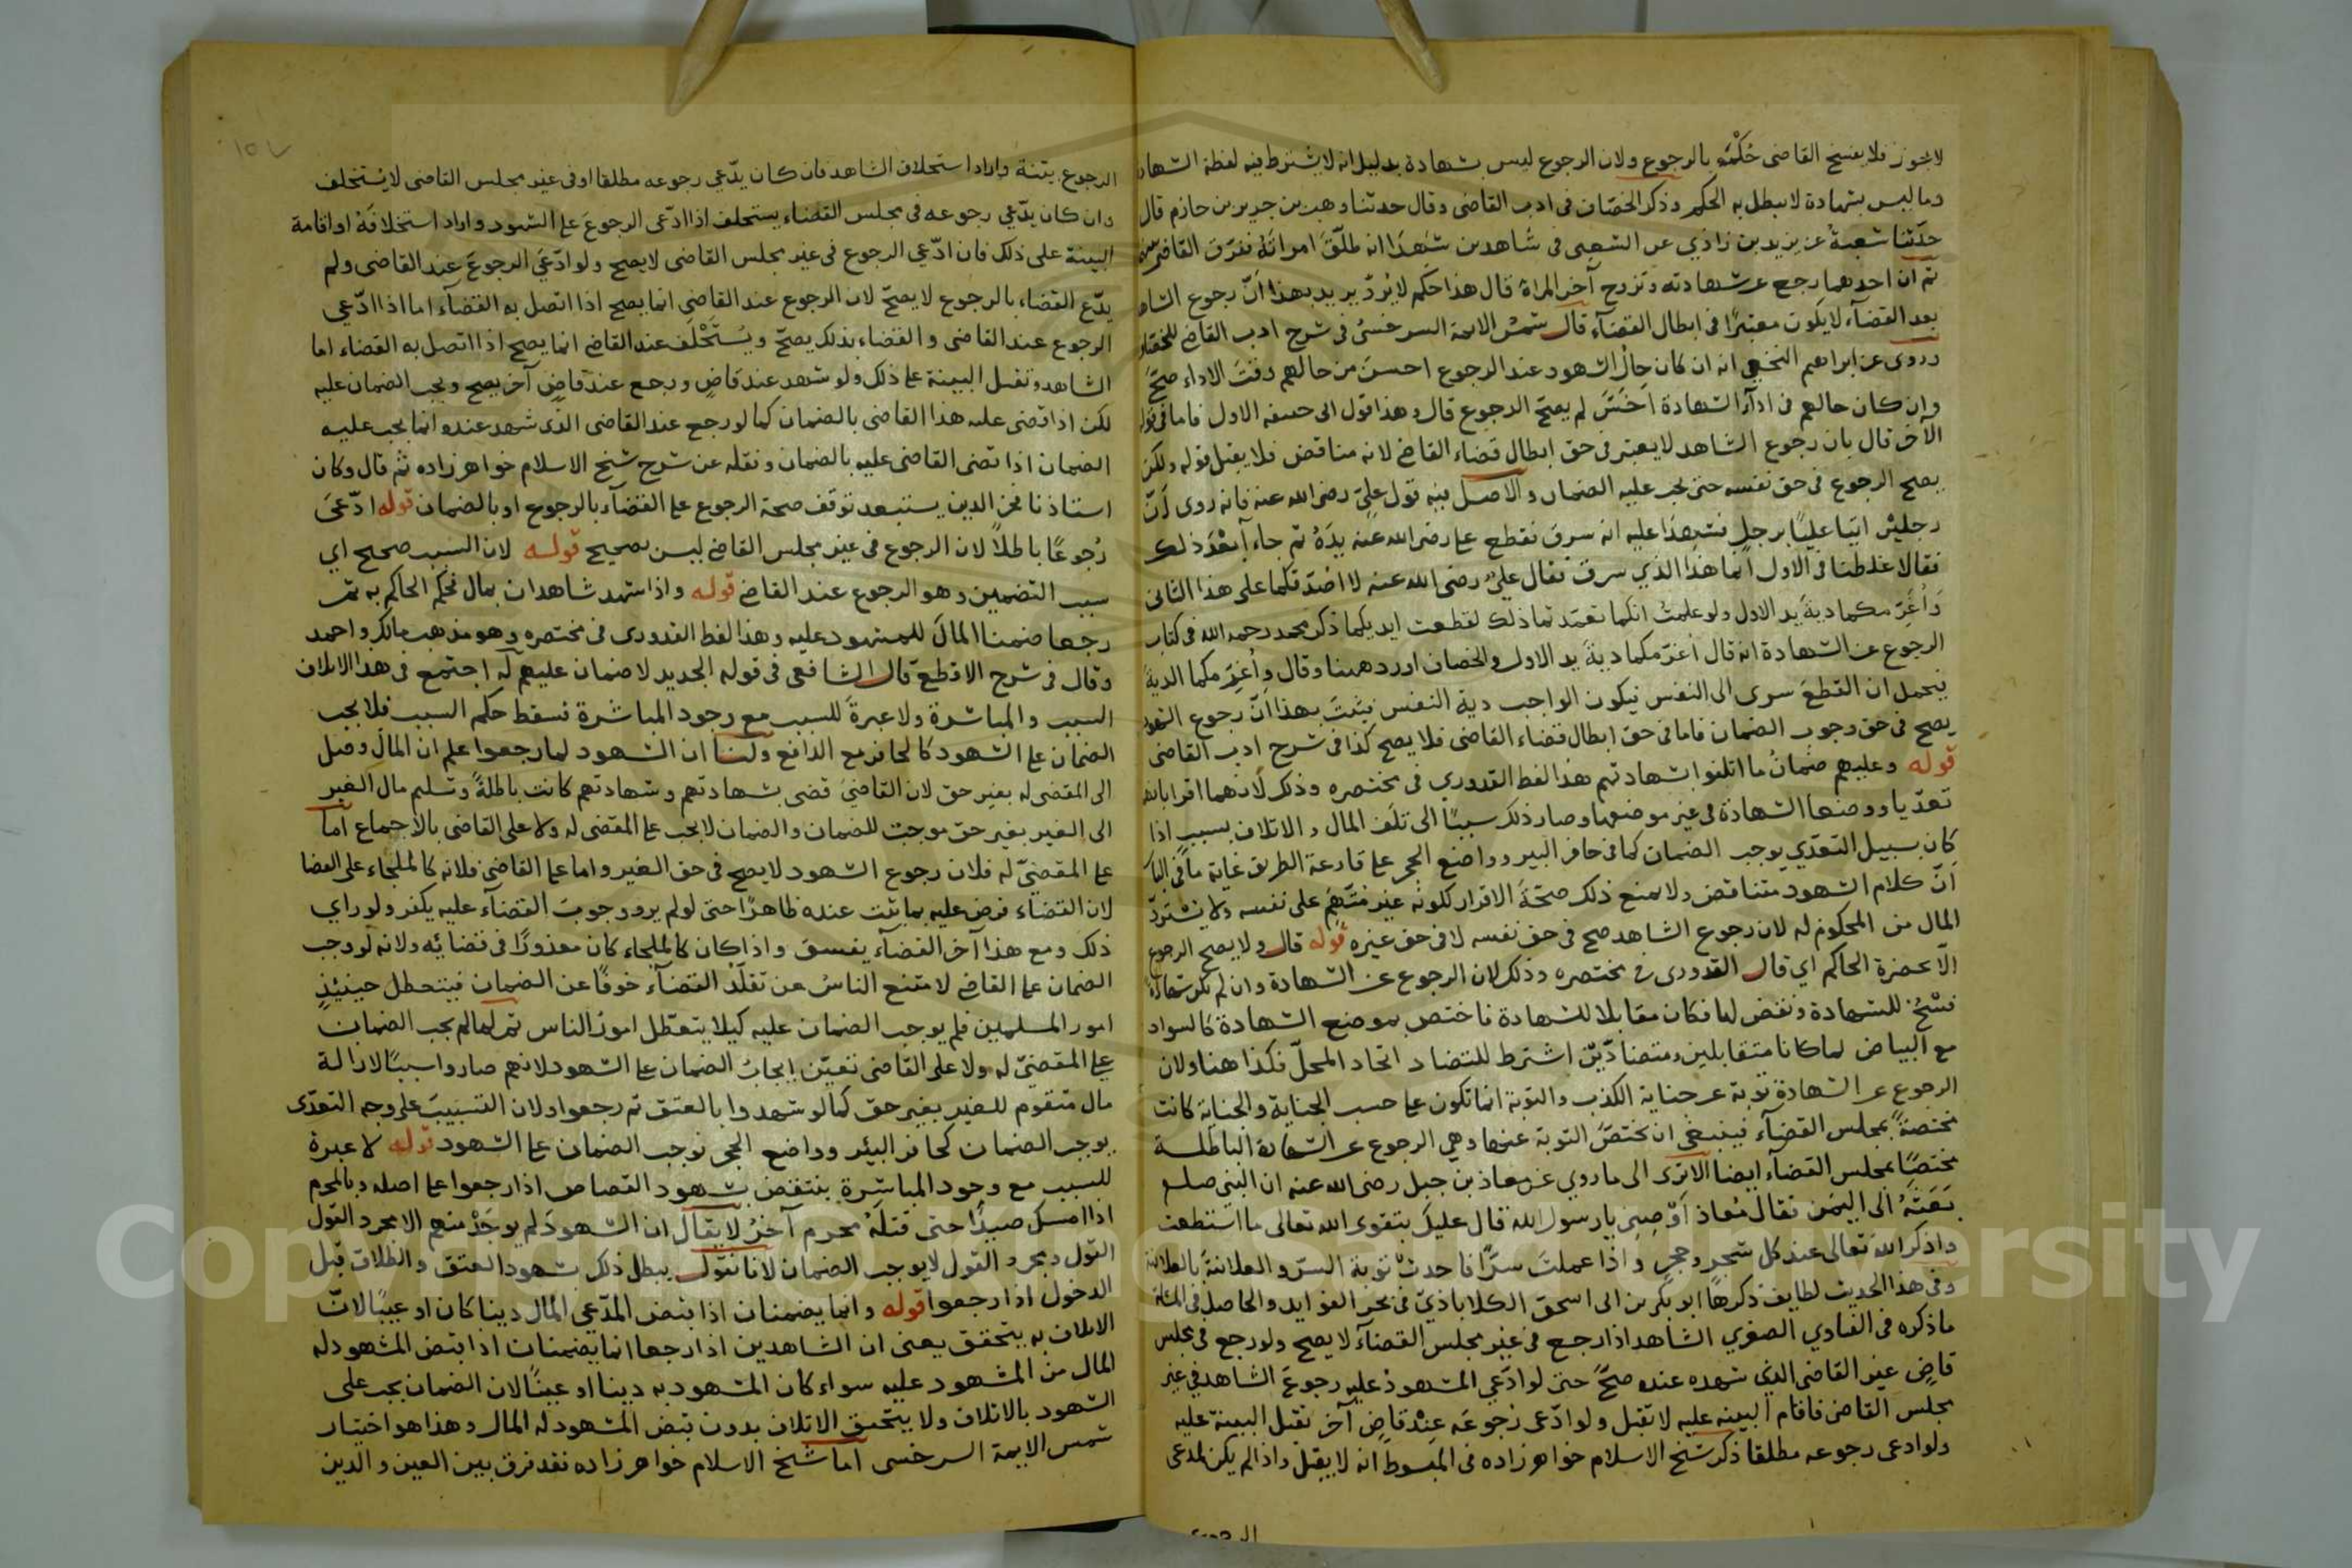 لا يجوز فلا يفسخ القاضى حُكْمَه بالرجوع ولان الرجوع ليس بشهادة بدليل انه لا يشترط فيه لفظة الشهادة
وما ليس بشهادة لا يبطل به الحكم وذكر الخصّاف فى ادب القاضى وقال حدثنا وهب بن جرير بن حازم قال
حدّثنا شعبةُ عن يزيد بن زاذي عن الشعبى فى شاهدين شَهِدَا انه طلّقَ امراتَهُ ففرّقَ القاضى بينهما
ثم ان احدهما رجع عن شهادته وتزوج آخر المراة قال هذا حكم لا يُردّ يريد بهذا انّ رجوع الشاهد
بعد القضآء لا يكون معتبرًا فى ابطال القضآء قال شمسُ الائمة السرخسىُّ فى شرح ادب القاضى للخصّاف
وروى عن ابراهيم النخعي انه ان كان حالُ الشهود عند الرجوع احسنَ من حالهم وقتَ الاداء صحَّ
وان كان حالهم فى ادآء الشهادة اَحْسَنَ لم يصحّ الرجوع قال وهذا قول ابى حنيفة الاول فاما فى قوله
الآخر قال بان رجوع الشاهد لا يعتبر فى حق ابطال قضاء القاضى لانه مناقض فلا يقبل قوله ولكن
يصح الرجوع فى حق نفسه حتى يجب عليه الضمان والاصل فيه قول عليّ رضى الله عنه فانه روى اَنّ
رجلين اتيا عليًّا برجلٍ فشهدَا عليه انه سرق فقطع علي رضى الله عنه يدَهُ ثم جاءآ بَعْدَ ذلك بآخر
فقالا غلطنا فى الاول انما هذا الذي سرق فقال عليّ رضى الله عنه لا اصدّقكما على هذا الثانى
وَاُغَرِّمكما ديةَ يد الاول ولو علمتُ انكما تعمّدتما ذلك لقطعت ايديكما ذكر محمد رحمه الله فى كتاب
الرجوع عن الشهادة انه قال اغرّمكما ديةَ يد الاول والخصاف اورد ههنا وقال واُغرِّمكما الديةَ
يحمل ان القطعَ سرى الى النفس فيكون الواجب دية النفس فثبتَ بهذا اَنّ رجوع الشهود
يصح فى حق وجوب الضمان فاما فى حق ابطال قضاء القاضى فلا يصح كذا فى شرح ادب القاضى
قوله وعليهم ضمانُ ما اتلفوا بشهادتهم هذا لفظ القدوري فى مختصره وذلك لاَنهما اقرا بانهما
تعدّيا ووضعا الشهادة فى غير موضعها وصار ذلك سببًا الى تلَف المال والاتلاف بسبب اذا
كان بسبيل التعدّي يوجب الضمان كما فى حافر البير وواضع الحجر على قارعة الطريق غاية ما فى الباب
اَنّ كلام الشهود متناقض ولا يمنع ذلك صحّةَ الاقرار لكونه غير متّهَمٍ على نفسه ولا يستردّ
المال من المحكوم له لان رجوع الشاهد صح فى حق نفسه لا فى حق غيره قوله قال ولا يصح الرجوع
الاّ بحضرة الحاكم اي قال القدورى فى مختصره وذلك لان الرجوع عن الشهادة وان لم يكن شهادة
فسْخُ للشهادة ونقض لها فكان مقابلا للشهادة فاختص بموضع الشهادة كالسواد
مع البياض لما كانا متقابلين ومتضادّين اشترط للتضاد اتحاد المحلّ فكذا هنا ولان
الرجوع عن الشهادة توبة عن جناية الكذب والتوبة انما تكون على حسب الجناية والجناية كانت
مختصةً بمجلس القضآء فينبغى ان تختصّ التوبة عنها وهي الرجوع عن الشهادة الباطلة
مختصًا بمجلس القضآء ايضا الا ترى الى ما روي عن معاذ بن جبل رضى الله عنه ان النبى صلعم
بَعَثَهُ الى اليمن فقال مُعاذ اَوْصِنِى يا رسول الله قال عليك بتقوى الله تعالى ما استطعت
واذكر الله تعالى عند كل شجر وحجر واذا عملت سرًّا فاحدث توبة السرّ والعلانية بالعلانية
وفى هذا الحديث لطايف ذكرها ابو بكر بن ابى اسحق الكلاباذيّ فى بحر الفوايد والحاصل فى المسئلة
ما ذكره فى الفتاوي الصغري الشاهد اذا رجع فى غير مجلس القضآء لا يصح ولو رجع فى مجلس
قاضٍ غير القاضى الذي شهده عنده صحَّ حتى لو ادّعي المشهودُ عليه رجوعَ الشاهد فى غير
مجلس القاضى فاقام البينه عليه لا تقبل ولو ادّعى رجوعَه عِنْدَ قاضٍ آخر تقبل البينة عليه
ولو ادعى رجوعه مطلقا ذكر شيخ الاسلام خواهر زاده فى المبسوط انه لا يقبل واذا لم يكن لمدعى
الرجوع
١٥٧
الرجوع بينة واراد استحلاف الشاهد فان كان يدّعي رجوعه مطلقا او فى غير مجلس القاضى لا يُستحلف
وان كان يدّعي رجوعه فى مجلس القضاء يستحلف اذا ادّعى الرجوعَ على الشهود واراد استحلافَهُ او اقامة
البينة على ذلك فان ادّعي الرجوع فى غير مجلس القاضى لا يصح ولو ادّعَي الرجوعَ عند القاضى ولم
يدّع القضاء بالرجوع لا يصحّ لان الرجوع عند القاضى انما يصح اذا اتصل به القضآء اما اذا ادّعي
الرجوع عند القاضى والقضاء بذلك يصحّ ويُسْتَحْلَف عند القاضى انما يصح اذا اتصل به القضاء اما
الشاهد وتقبل البينة على ذلك ولو شهد عند قاضٍ ورجع عند قاضٍ آخر يصح ويجب الضمان عليه
لكن اذا قضى عليه هذا القاضى بالضمان كما لو رجع عند القاضى الذى شهد عنده انما يجب عليه
الضمان اذا قضى القاضى عليه بالضمان ونقله عن شرح شيخ الاسلام خواهر زاده ثم قال وكان
استاذنا فخر الدين يستبعد توقف صحة الرجوع على القضآء بالرجوع او بالضمان قوله ادّعىَ
رُجوعًا باطلاً لان الرجوع فى غير مجلس القاضى ليس بصحيح قوله لان السبب صحيح اي
سبب التضمين وهو الرجوع عند القاضى قوله واذا شهد شاهدان بمال فحكم الحاكم به ثم
رجعا ضمنا المالَ للمشهود عليه وهذا لفظ القدورى فى مختصره وهو مذهب مالك واحمد
وقال فى شرح الاقطع قال الشافعى فى قوله الجديد لا ضمان عليهم له اجتمع فى هذا الاتلاف
السبب والمباشرة ولا عبرةَ للسبب مع وجود المباشرة فسقط حكم السبب فلا يجب
الضمان على الشهود كالحافر مع الدافع ولنا ان الشهود لما رجعوا علم ان المال وصل
الى المقضى له بغير حق لان القاضىَ قضى بشهادتهم وشهادتهم كانت باطلةً وتسليم مال الغير
الى الغير بغير حق موجب للضمان والضمان لا يجب على المقضى له ولا على القاضى بالاجماع اما
على المقضيّ له فلان رجوع الشهود لا يصح فى حق الغير واما على القاضى فلانه كالملجاء على القضا
لان القضآء فرض عليه بما ثبت عنده ظاهرًا حتى لو لم ير وجوبَ القضآء عليه يكفر ولو راي
ذلك ومع هذا آخر القضآء يفسق واذا كان كالملجاء كان معذورًا فى قضائه ولانه لو وجب
الضمان على القاضى لامتنع الناسُ عن تقلّد القضآء خوفًا عن الضمان فيتعطل حينئذٍ
امور المسلمين فلم يوجب الضمان عليه كيلا يتعطّل امورُ الناس ثم لما لم يجب الضمان
على المقضيّ له ولا على القاضى تعيّن إيجابُ الضمان على الشهود لانهم صاروا سببًا لازالة
مال متقوم للغير بغير حق كما لو شهدوا بالعتق ثم رجعوا ولان التسبيبَ على وجه التعدّى
يوجب الضمان كحافر البئر وواضع الحجر فوجب الضمان على الشهود قوله لا عبرة
للسبب مع وجود المباشرة ينتقض بشهود القصاص اذا رجعوا على اصله وبالمحرم
اذا امسك صيدًا حتى قتلَهُ محرم آخرُ لا يقال ان الشهودَ لم يوجَدْ منهم الا مجرد القول
القول ومجرد القول لا يوجب الضمان لانا نقول يبطل ذلك بشهود العتق والطلاق قبل
الدخول اذا رجعوا قوله وانما يضمنان اذا قبض المدّعي المال دينا كان او عينًا لانّ
الاتلاف به يتحقق يعنى ان الشاهدين اذا رجعا انما يضمنان اذا قبض المشهود له
المال من المشهود عليه سواء كان المشهود به دينا او عينًا لان الضمان يجب على
الشهود بالاتلاف ولا يتحقق الاتلاف بدون قبض المشهود له المال وهذا هو اختيار
شمس الايمة السرخسى اما شيخ الاسلام خواهر زاده فقد فرق بين العين والدين
Copyright © King Saud University